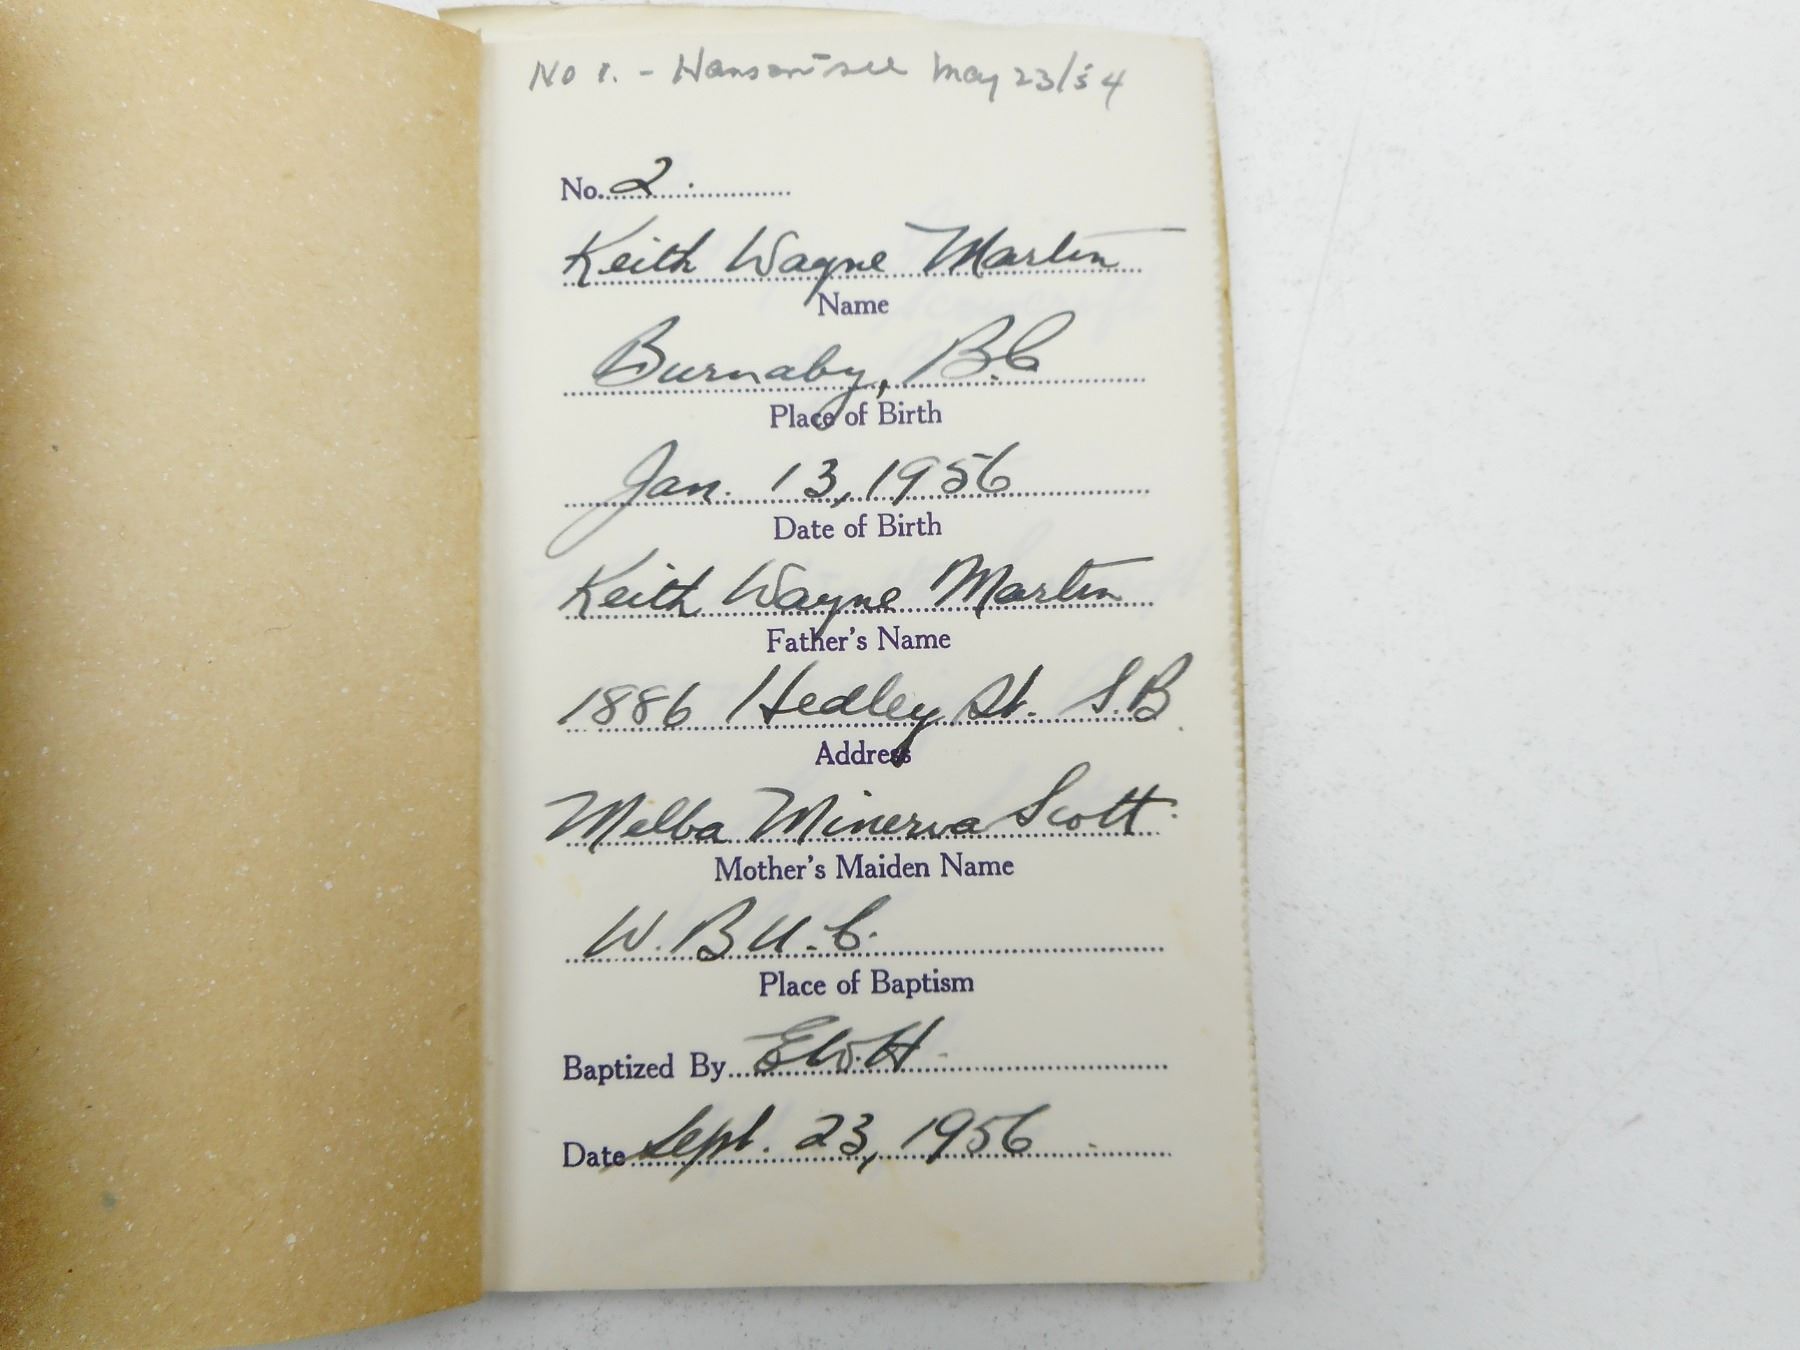 No 1. - Hanson - see May 23/54
No. 2.
Keith Wayne Martin
Name
Burnaby, B.C
Place of Birth
Jan. 13, 1956
Date of Birth
Keith Wayne Martin
Father's Name
1886 Hedley St. S.B.
Address
Melba Minerva Scott.
Mother's Maiden Name
W.B U.C.
Place of Baptism
Baptized By E.W.H.
Date Sept. 23, 1956